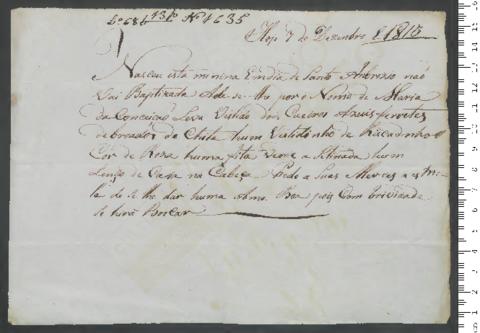 Nº 4635
7 de Dezembro 1813
Nasceu esta minina Em dia de Santo Ambrozio não
Vai Baptizada e de se lhe por o Nome de Maria
da Conceição Leva Vistido dois Cueiros
de Chita hum Vistidinho de Riscadinho
Cor de Roza huma fita verde asetinada hum
Lenço de Casa na Cabeça Pede a Suas Merces a
de se lhe dar huma Ama Boa pois Com brividade
se hirá Buscar